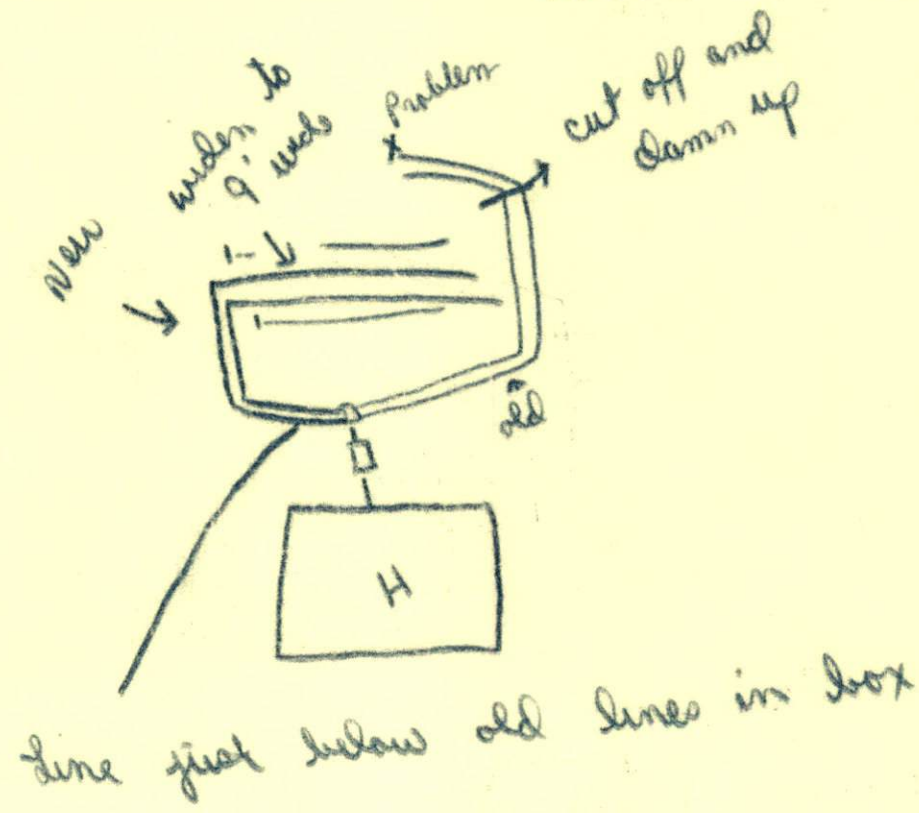 widen to
9' wide
Problem
cut off and
damn up
New
old
H
Line just below old lines in box